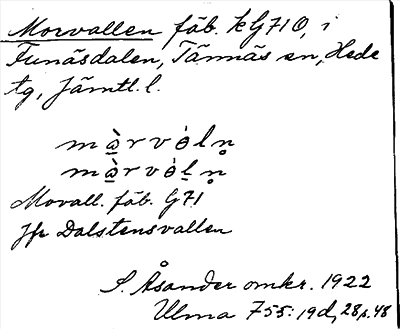 Morvallen fäb. kG71O, i
Funäsdalen, Tännäs sn, Hede
tg, Jämtl. l.
m à̱ r v ò l n̥
m à̱ r v ò ḻ n̥
Movall. fäb. G71
Jfr Dalstensvallen
S. Åsander omkr. 1922
Ulma 755:19d, 28, s. 48